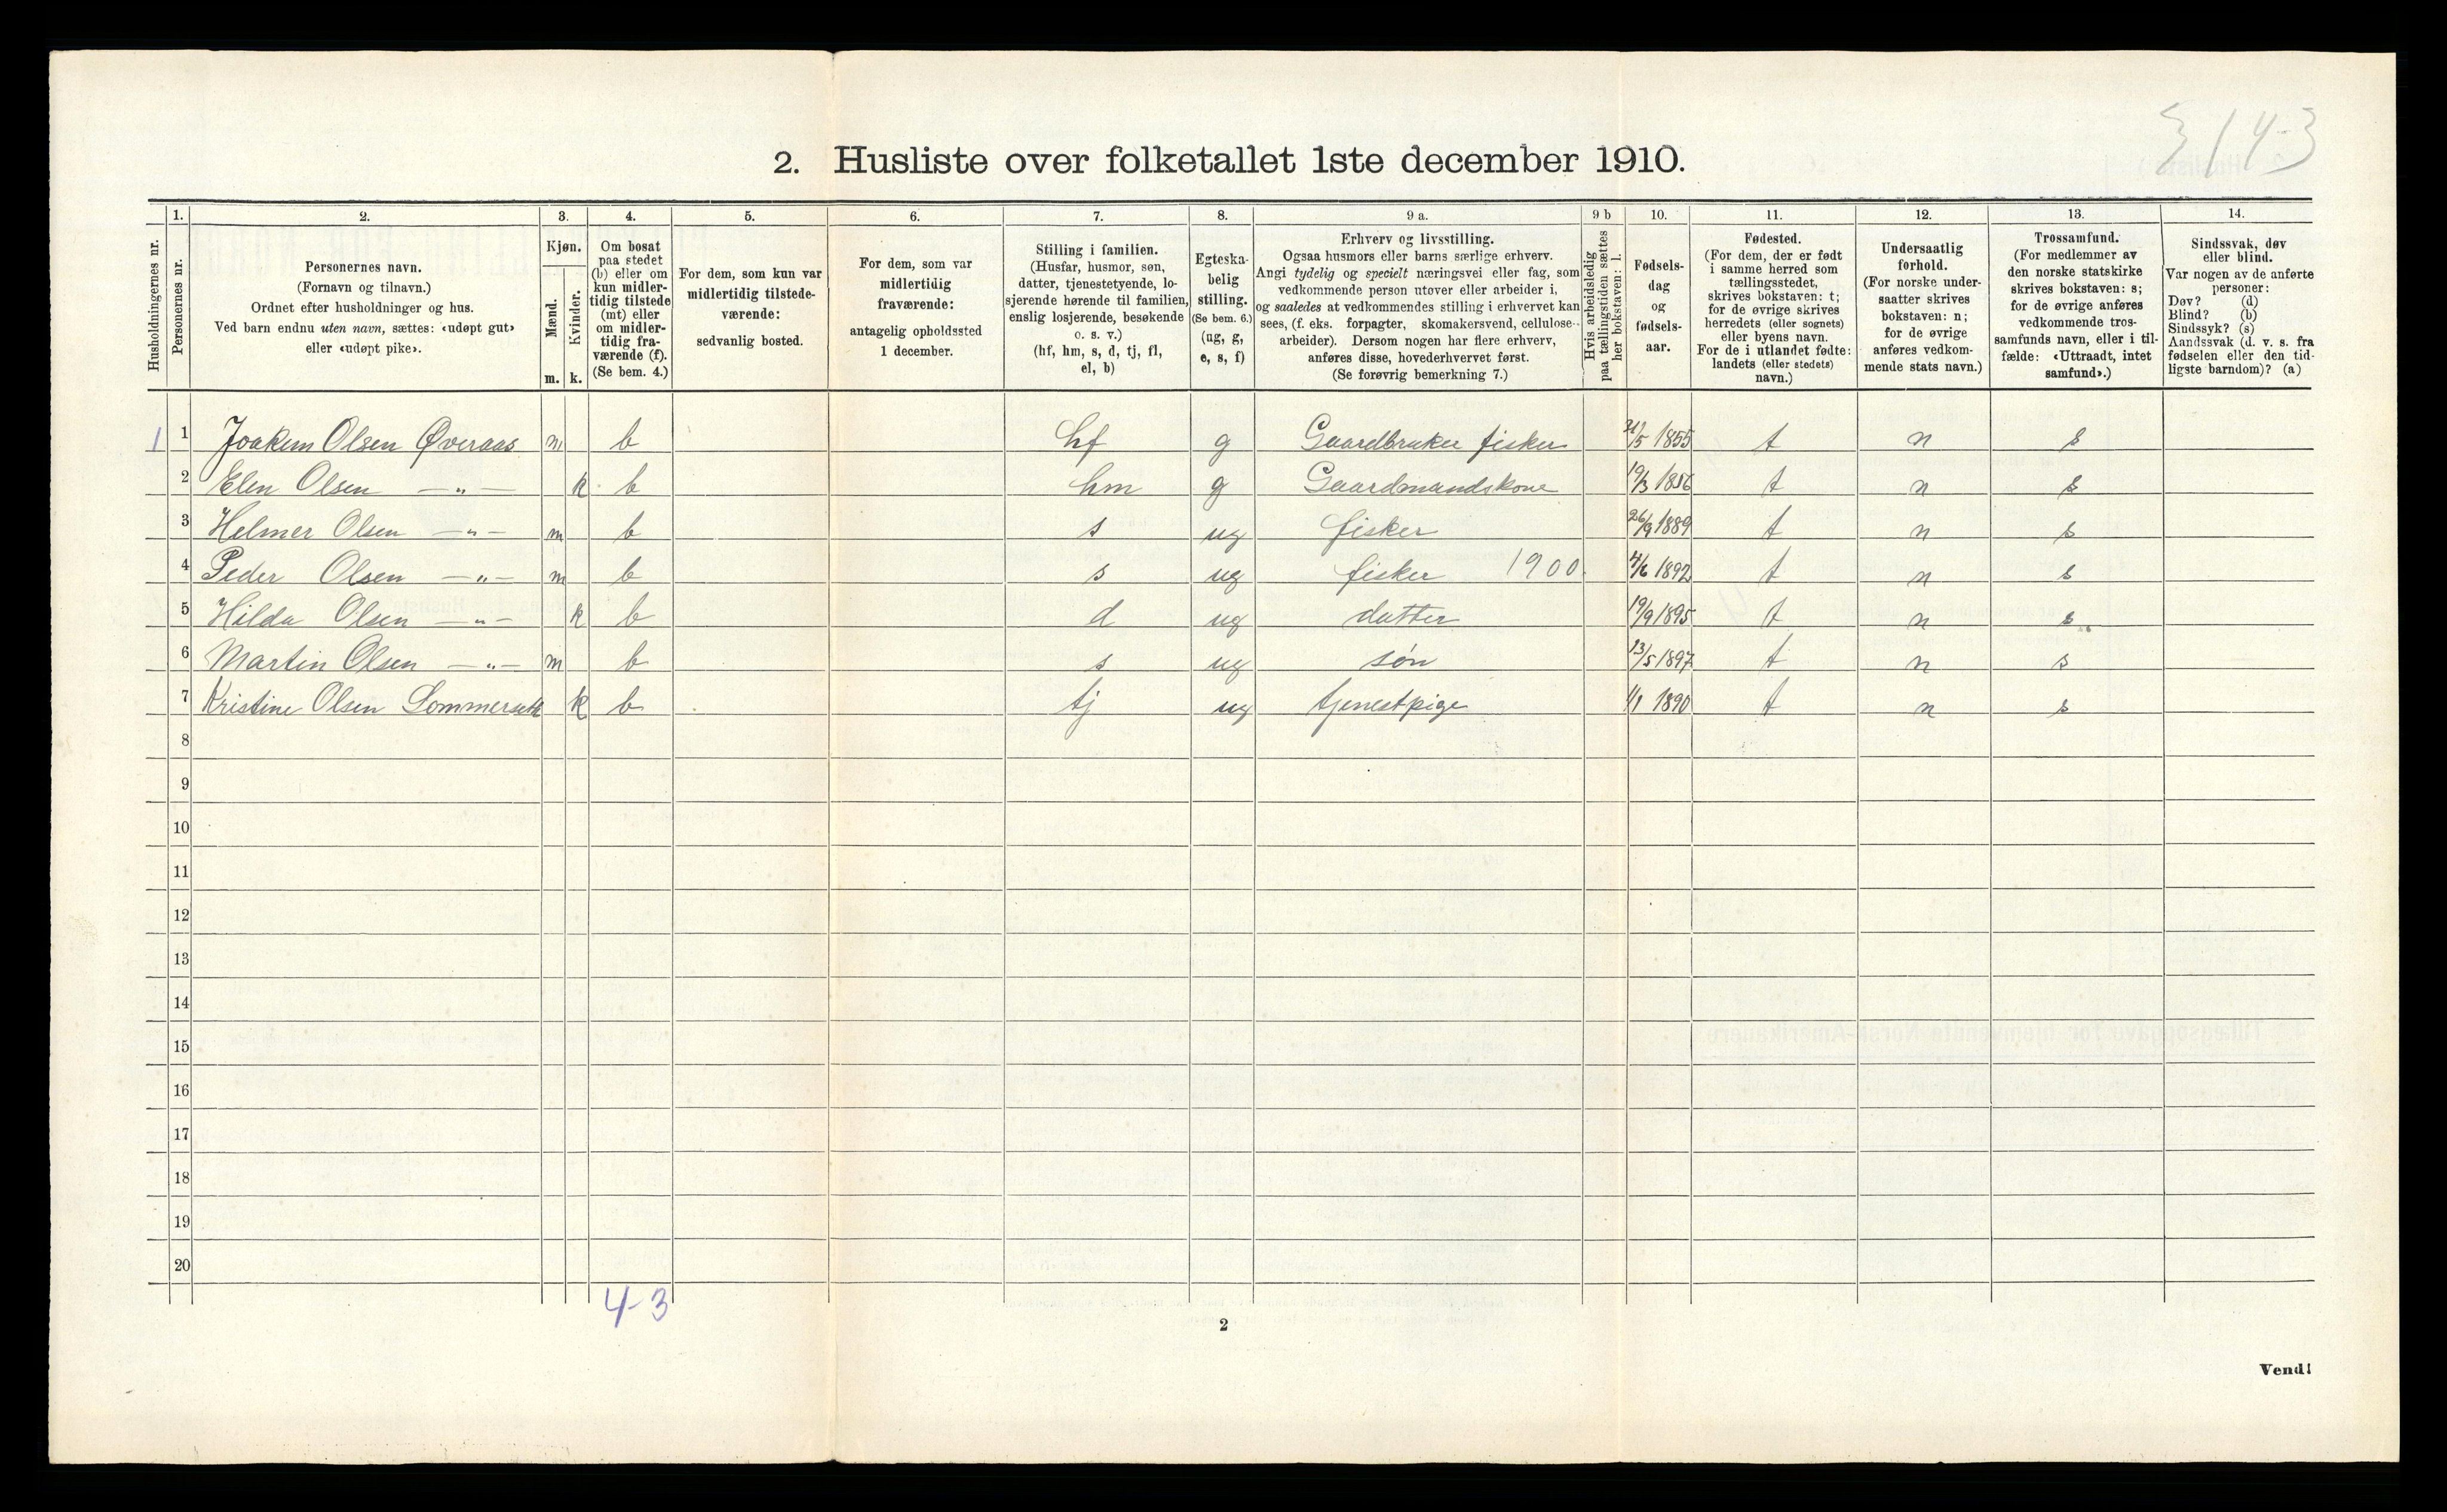 E 14-3
2. Husliste over folketallet 1ste december 1910.
1. 2. 3. 4. 5. 6. 7. 8. 9 a. 9 b 10. 11. 12. 13. 14.
Husholdningernes nr.
Personernes nr.
Personernes navn.
(Fornavn og tilnavn.)
Ordnet efter husholdninger og hus.
Ved barn endnu uten navn, sættes: «udøpt gut»
eller «udøpt pike».
Kjøn.
Mænd.
Kvinder.
m. k.
Om bosat
paa stedet
(b) eller om
kun midler-
tidig tilstede
(mt) eller
om midler-
tidig fra-
værende (f).
(Se bem. 4.)
For dem, som kun var
midlertidig tilstede-
værende:
sedvanlig bosted.
For dem, som var
midlertidig
fraværende:
antagelig opholdssted
1 december.
Stilling i familien.
(Husfar, husmor, søn,
datter, tjenestetyende, lo-
sjerende hørende til familien,
enslig losjerende, besøkende
o. s. v.)
(hf, hm, s, d, tj, fl,
el, b)
Egteska-
belig
stilling.
(Se bem. 6.)
(ug, g,
e, s, f)
Erhverv og livsstilling.
Ogsaa husmors eller barns særlige erhverv.
Angi tydelig og specielt næringsvei eller fag, som
vedkommende person utøver eller arbeider i,
og saaledes at vedkommendes stilling i erhvervet kan
sees, (f. eks. forpagter, skomakersvend, cellulose-
arbeider). Dersom nogen har flere erhverv,
anføres disse, hovederhvervet først.
(Se forøvrig bemerkning 7.)
Hvis arbeidsledig
paa tællingstiden sættes
her bokstaven: l.
Fødsels-
dag
og
fødsels-
aar.
Fødested.
(For dem, der er født
i samme herred som
tællingsstedet,
skrives bokstaven: t;
for de øvrige skrives
herredets (eller sognets)
eller byens navn.
For de i utlandet fødte:
landets (eller stedets)
navn.)
Undersaatlig
forhold.
(For norske under-
saatter skrives
bokstaven: n;
for de øvrige
anføres vedkom-
mende stats navn.)
Trossamfund.
(For medlemmer av
den norske statskirke
skrives bokstaven: s;
for de øvrige anføres
vedkommende tros-
samfunds navn, eller i til-
fælde: «Uttraadt, intet
samfund».)
Sindssvak, døv
eller blind.
Var nogen av de anførte
personer:
Døv? (d)
Blind? (b)
Sindssyk? (s)
Aandssvak (d. v. s. fra
fødselen eller den tid-
ligste barndom)? (a)
1 1 Joakim Olsen Øveraas m b hf g Gaardbruker fisker 21/5 1855 t n s
2 Elen Olsen —"— k b hm g Gaardmandskone 19/3 1856 t n s
3 Helmer Olsen —"— m b s ug fisker 26/9 1889 t n s
4 Peder Olsen —"— m b s ug fisker 1900 4/6 1892 t n s
5 Hilda Olsen —"— k b d ug datter 19/9 1895 t n s
6 Martin Olsen —"— m b s ug søn 13/5 1897 t n s
7 Kristine Olsen k b tj ug tjenestpige 1/1 1890 t n s
8
9
10
11
12
13
14
15
16
17
18
19
20
4-3
2
Vend!